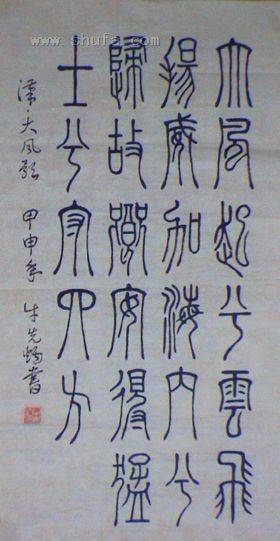 www.shufa.com
大風起兮雲飛
揚威加海内兮
歸故鄉安得猛
士兮守四方
漢·大風歌 甲申年 牛先書